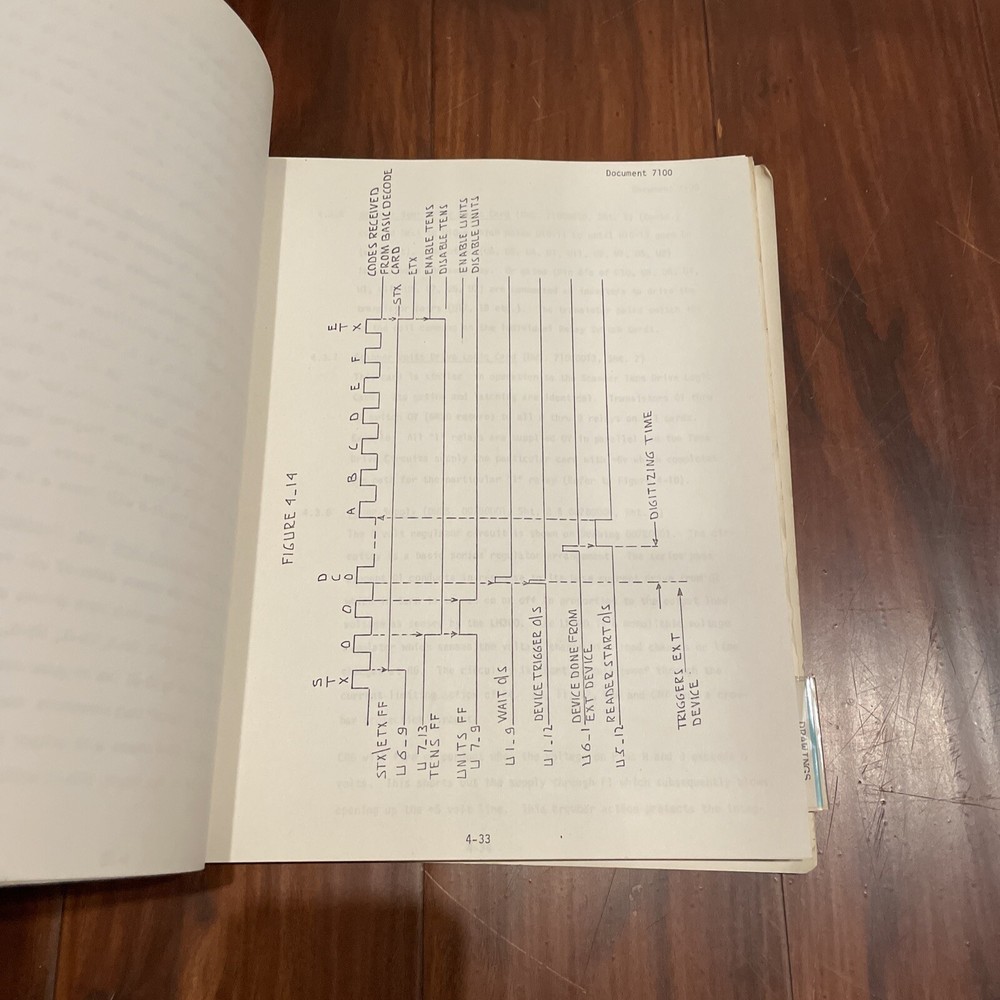 Document 7100
FIGURE 4_14
S
T
X
0
0
D
C
0
A
B
C
D
E
F
E
T
X
CODES RECEIVED
FROM BASIC DECODE
CARD
STX
ETX
ENABLE TENS
DISABLE TENS
ENABLE UNITS
DISABLE UNITS
STX\ETX FF
U6_9
U7_13
TENS FF
UNITS FF
U7_9
WAIT O/S
U1_9
DEVICE TRIGGER O/S
U1_12
DEVICE DONE FROM
EXT DEVICE
U6_1
READER START O/S
U5_12
DIGITIZING TIME
TRIGGERS EXT
DEVICE
4-33
DRAWINGS